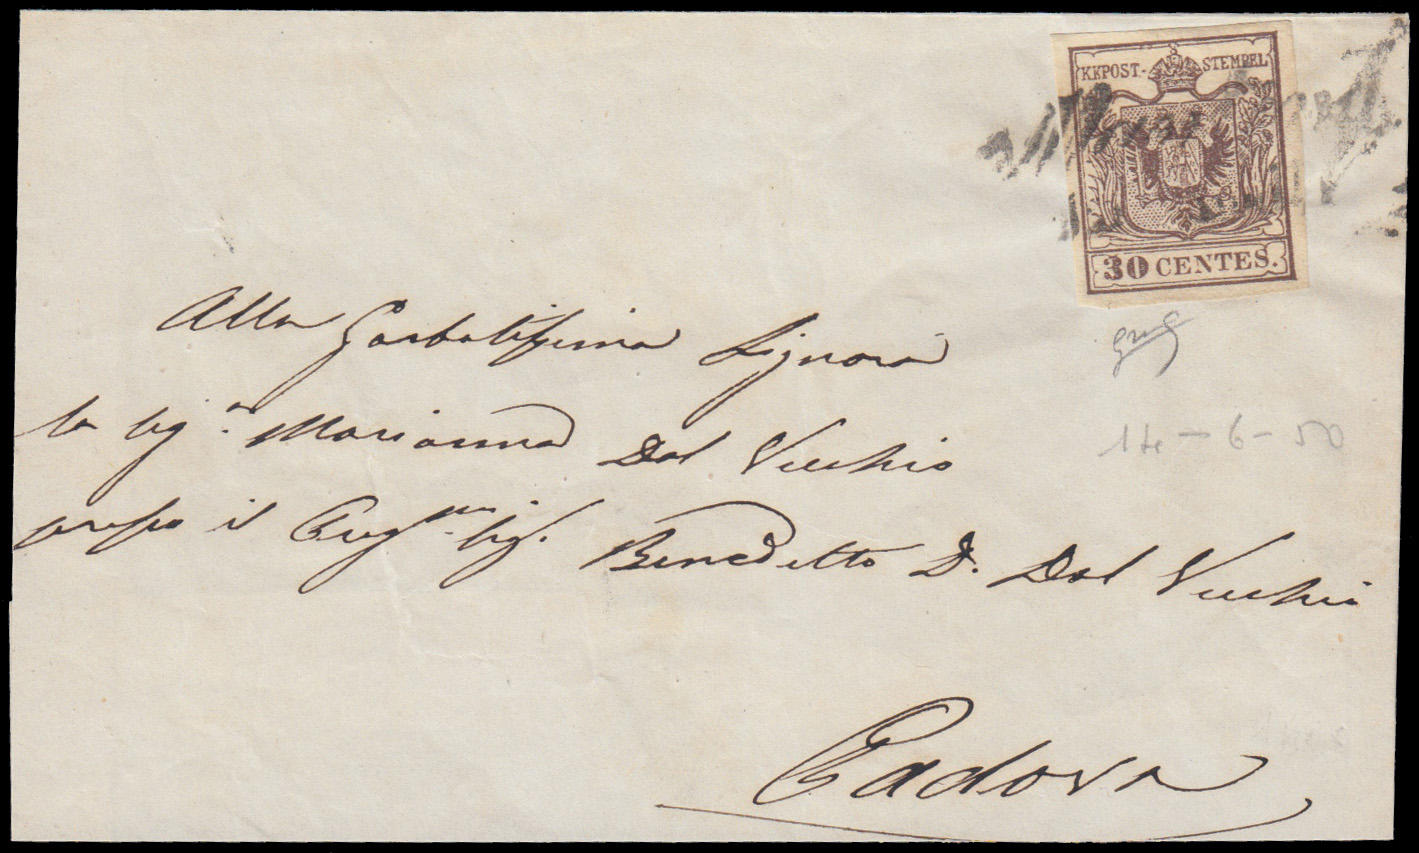 KKPOST-STEMPEL
30 CENTES.
Alla Garbatissima Signora
la Sig.a Marianna Dal Vecchio
presso il Sig. Benedetto D. Dal Vecchio
Padova